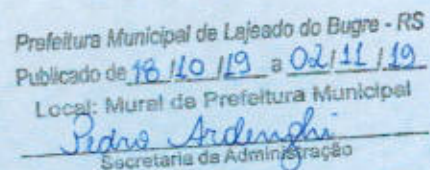 Prefeitura Municipal de Lajeado do Bugre - RS
Publicado de 18/10/19 a 02/11/19
Local: Mural de Prefeitura Municipal
Pedro Ardenghi
Secretaria da Administração